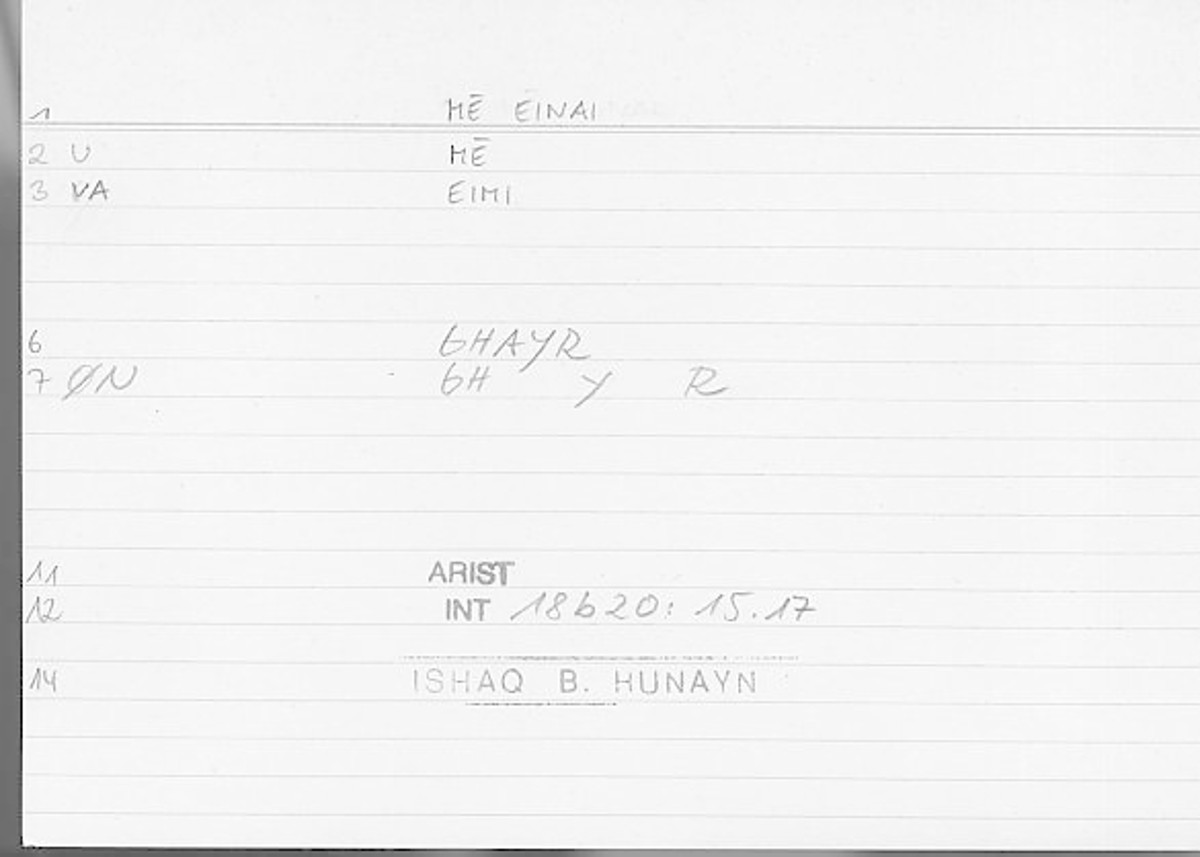 1 MĒ EINAI
2 U MĒ
3 VA EIMI
6 GHAYR
7 ØN GH Y R
11 ARIST
12 INT 18b20: 15.17
14 ISHAQ B. HUNAYN